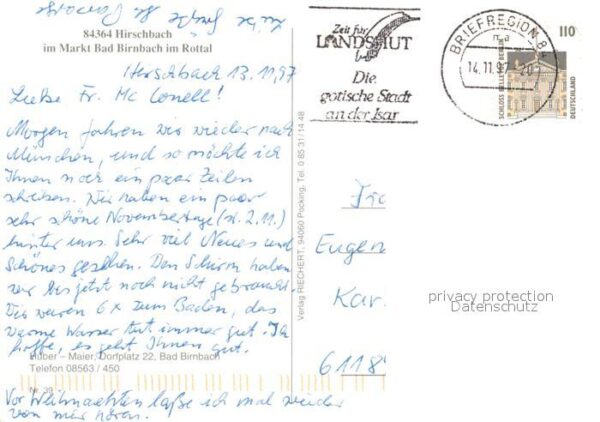 84364 Hirschbach
im Markt Bad Birnbach im Rottal
Hirschbach 13.11.97
Liebe Fr. Mc Conell!
Morgen fahren wir wieder nach
München, und so möchte ich
Ihnen noch ein paar Zeilen
schreiben. Wir haben ein paar
sehr schöne Novembertage
hinter uns. Sehr viel Neues und
Schönes gesehen. Den Schirm haben
wir bis jetzt noch nicht gebraucht.
Wir waren 6x zum Baden, das
warme Wasser tut immer gut. Ich
hoffe, es geht Ihnen gut.
Huber – Maier, Dorfplatz 22, Bad Birnbach
Telefon 08563 / 450
Nr. 39
Vor Weihnachten laße ich mal wieder
von mir hören.
Liebe Grüße Ihr
Verlag RIECHERT, 94060 Pocking, Tel. 0 85 31 / 14 48
Zeit für
LANDSHUT
Die
gotische Stadt
an der Isar
BRIEFREGION 8
ma
14.11.97
110
SCHLOSS BELLEVUE BERLIN
DEUTSCHLAND
Eugen
Kar
6118
privacy protection
Datenschutz